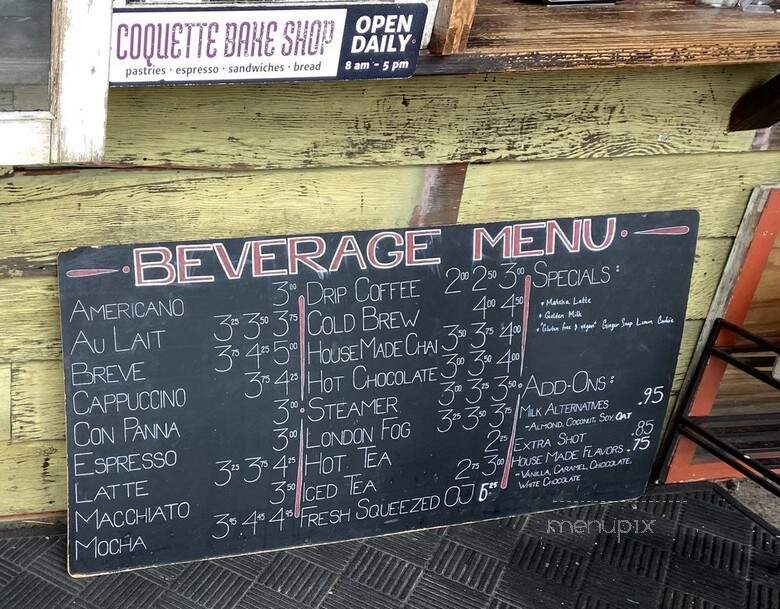 COQUETTE BAKE SHOP
pastries · espresso · sandwiches · bread
OPEN
DAILY
8 am - 5 pm
BEVERAGE MENU
AMERICANO 3.00
AU LAIT 3.25 3.50 3.75
BREVE 3.75 4.25 5.00
CAPPUCCINO 3.75 4.25
CON PANNA 3.00
ESPRESSO 3.00
LATTE 3.25 3.75 4.25
MACCHIATO 3.50
MOCHA 3.95 4.45 4.95
DRIP COFFEE 2.00 2.50 3.00
COLD BREW 4.00 4.50
HOUSE MADE CHAI 3.50 3.75 4.00
HOT CHOCOLATE 3.00 3.50 4.00
STEAMER 3.00 3.25 3.50
LONDON FOG 3.25 3.50 3.75
HOT TEA 2.25
ICED TEA 2.75 3.00
FRESH SQUEEZED OJ 6.25
SPECIALS:
• Matcha Latte
• Golden Milk
• "Gluten free & vegan" Ginger Snap Lemon Cookie
ADD-ONS:
MILK ALTERNATIVES .95
-ALMOND, COCONUT, SOY, OAT
EXTRA SHOT .85
HOUSE MADE FLAVORS .75
-VANILLA, CARAMEL, CHOCOLATE,
WHITE CHOCOLATE
menupix